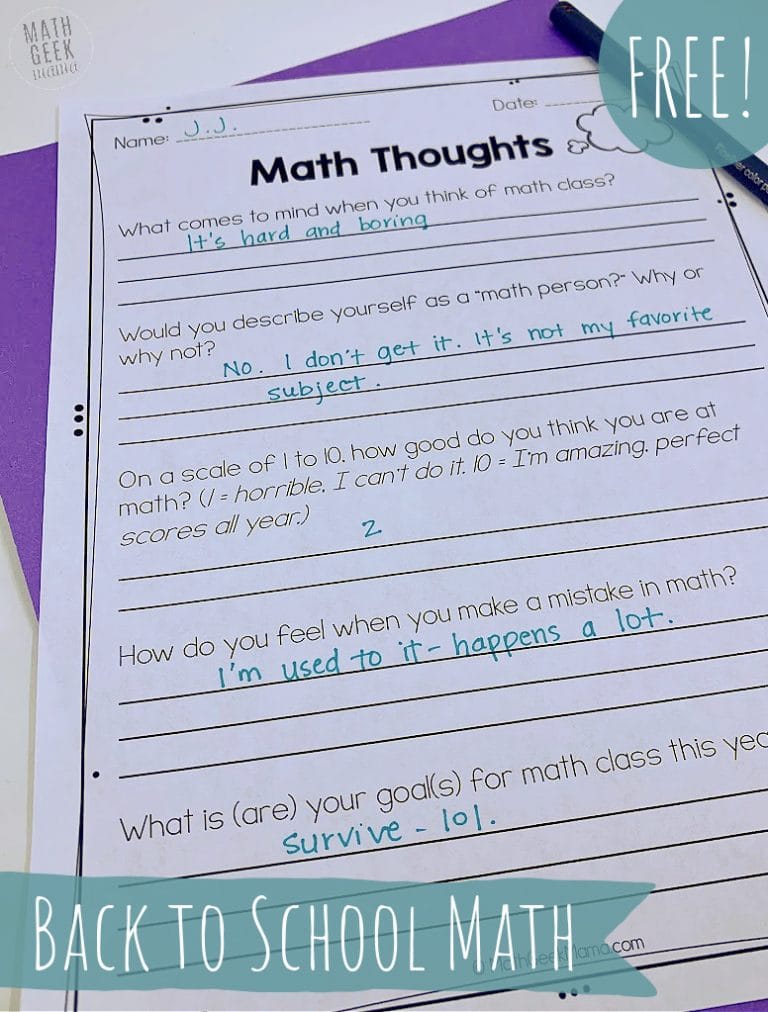 MATH
GEEK
mama
FREE!
Name: J.J.
Date:
Math Thoughts
What comes to mind when you think of math class?
It's hard and boring
Would you describe yourself as a "math person?" Why or
why not?
No. I don't get it. It's not my favorite
subject.
On a scale of 1 to 10, how good do you think you are at
math? (1 = horrible, I can't do it. 10 = I'm amazing, perfect
scores all year.)
2
How do you feel when you make a mistake in math?
I'm used to it - happens a lot.
What is (are) your goal(s) for math class this yea
survive - lol.
© MathGeekMama.com
BACK TO SCHOOL MATH